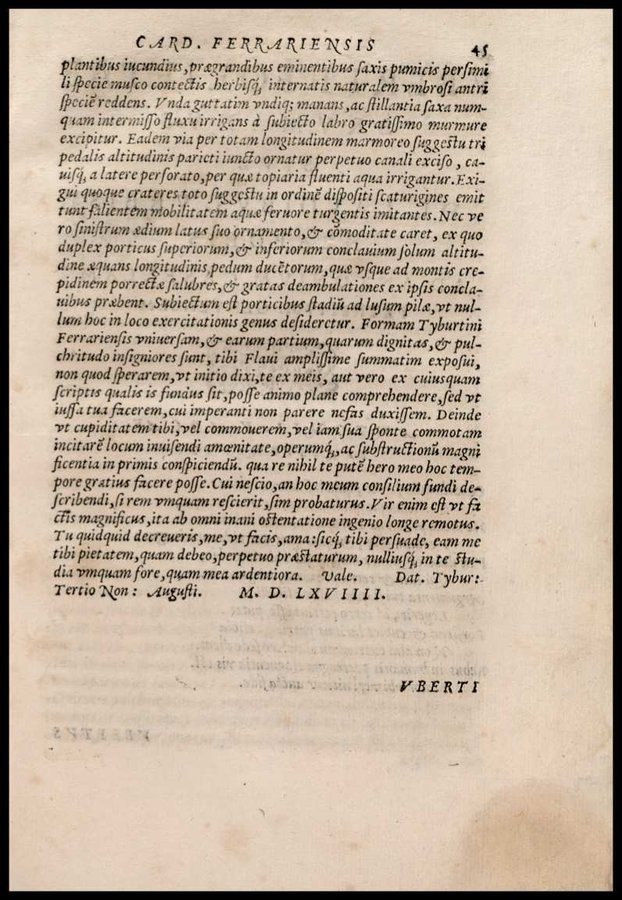 CARD. FERRARIENSIS 45
plantibus iucundius, prægrandibus eminentibus saxis pumicis persimi
li specie musco contectis herbisq́; internatis naturalem vmbrosi antri
speciē reddens. Vnda guttatim vndiq; manans, ac stillantia saxa num-
quam intermisso fluxu irrigans à subiecto labro gratissimo murmure
excipitur. Eadem via per totam longitudinem marmoreo suggestu tri
pedalis altitudinis parieti iuncto ornatur perpetuo canali exciso, ca-
uisq́; a latere perforato, per quæ topiaria fluenti aqua irrigantur. Exi-
gui quoque crateres toto suggestu in ordinē dispositi scaturigines emit
tunt salientem mobilitatem aquæ feruore turgentis imitantes. Nec ve
ro sinistrum ædium latus suo ornamento, & cōmoditate caret, ex quo
duplex porticus superiorum, & inferiorum conclauium solum altitu-
dine æquans longitudinis pedum ducētorum, quæ vsque ad montis cre-
pidinem porrectæ salubres, & gratas deambulationes ex ipsis concla-
uibus præbent. Subiectum est porticibus stadiū ad lusum pilæ, vt nul-
lum hoc in loco exercitationis genus desideretur. Formam Tyburtini
Ferrariensis vniuersam, & earum partium, quarum dignitas, & pul-
chritudo insigniores sunt, tibi Flaui amplissime summatim exposui,
non quod sperarem, vt initio dixi, te ex meis, aut vero ex cuiusquam
scriptis qualis is fundus sit, posse animo plane comprehendere, sed vt
iussa tua facerem, cui imperanti non parere nefas duxissem. Deinde
vt cupiditatem tibi, vel commouerem, vel iam sua sponte commotam
incitarē locum inuisendi amœnitate, operumq́; ac substructionū magni
ficentia in primis conspiciendū. qua re nihil te putē hero meo hoc tem-
pore gratius facere posse. Cui nescio, an hoc meum consilium fundi de-
scribendi, si rem vmquam rescierit, sim probaturus. Vir enim est vt fa
ctis magnificus, ita ab omni inani ostentatione ingenio longe remotus.
Tu quidquid decreueris, me, vt facis, ama: sicq́; tibi persuade, eam me
tibi pietatem, quam debeo, perpetuo præstaturum, nulliusq́; in te stu-
dia vmquam fore, quam mea ardentiora. Vale. Dat. Tybur:
Tertio Non: Augusti. M. D. LXVIIII.
VBERTI